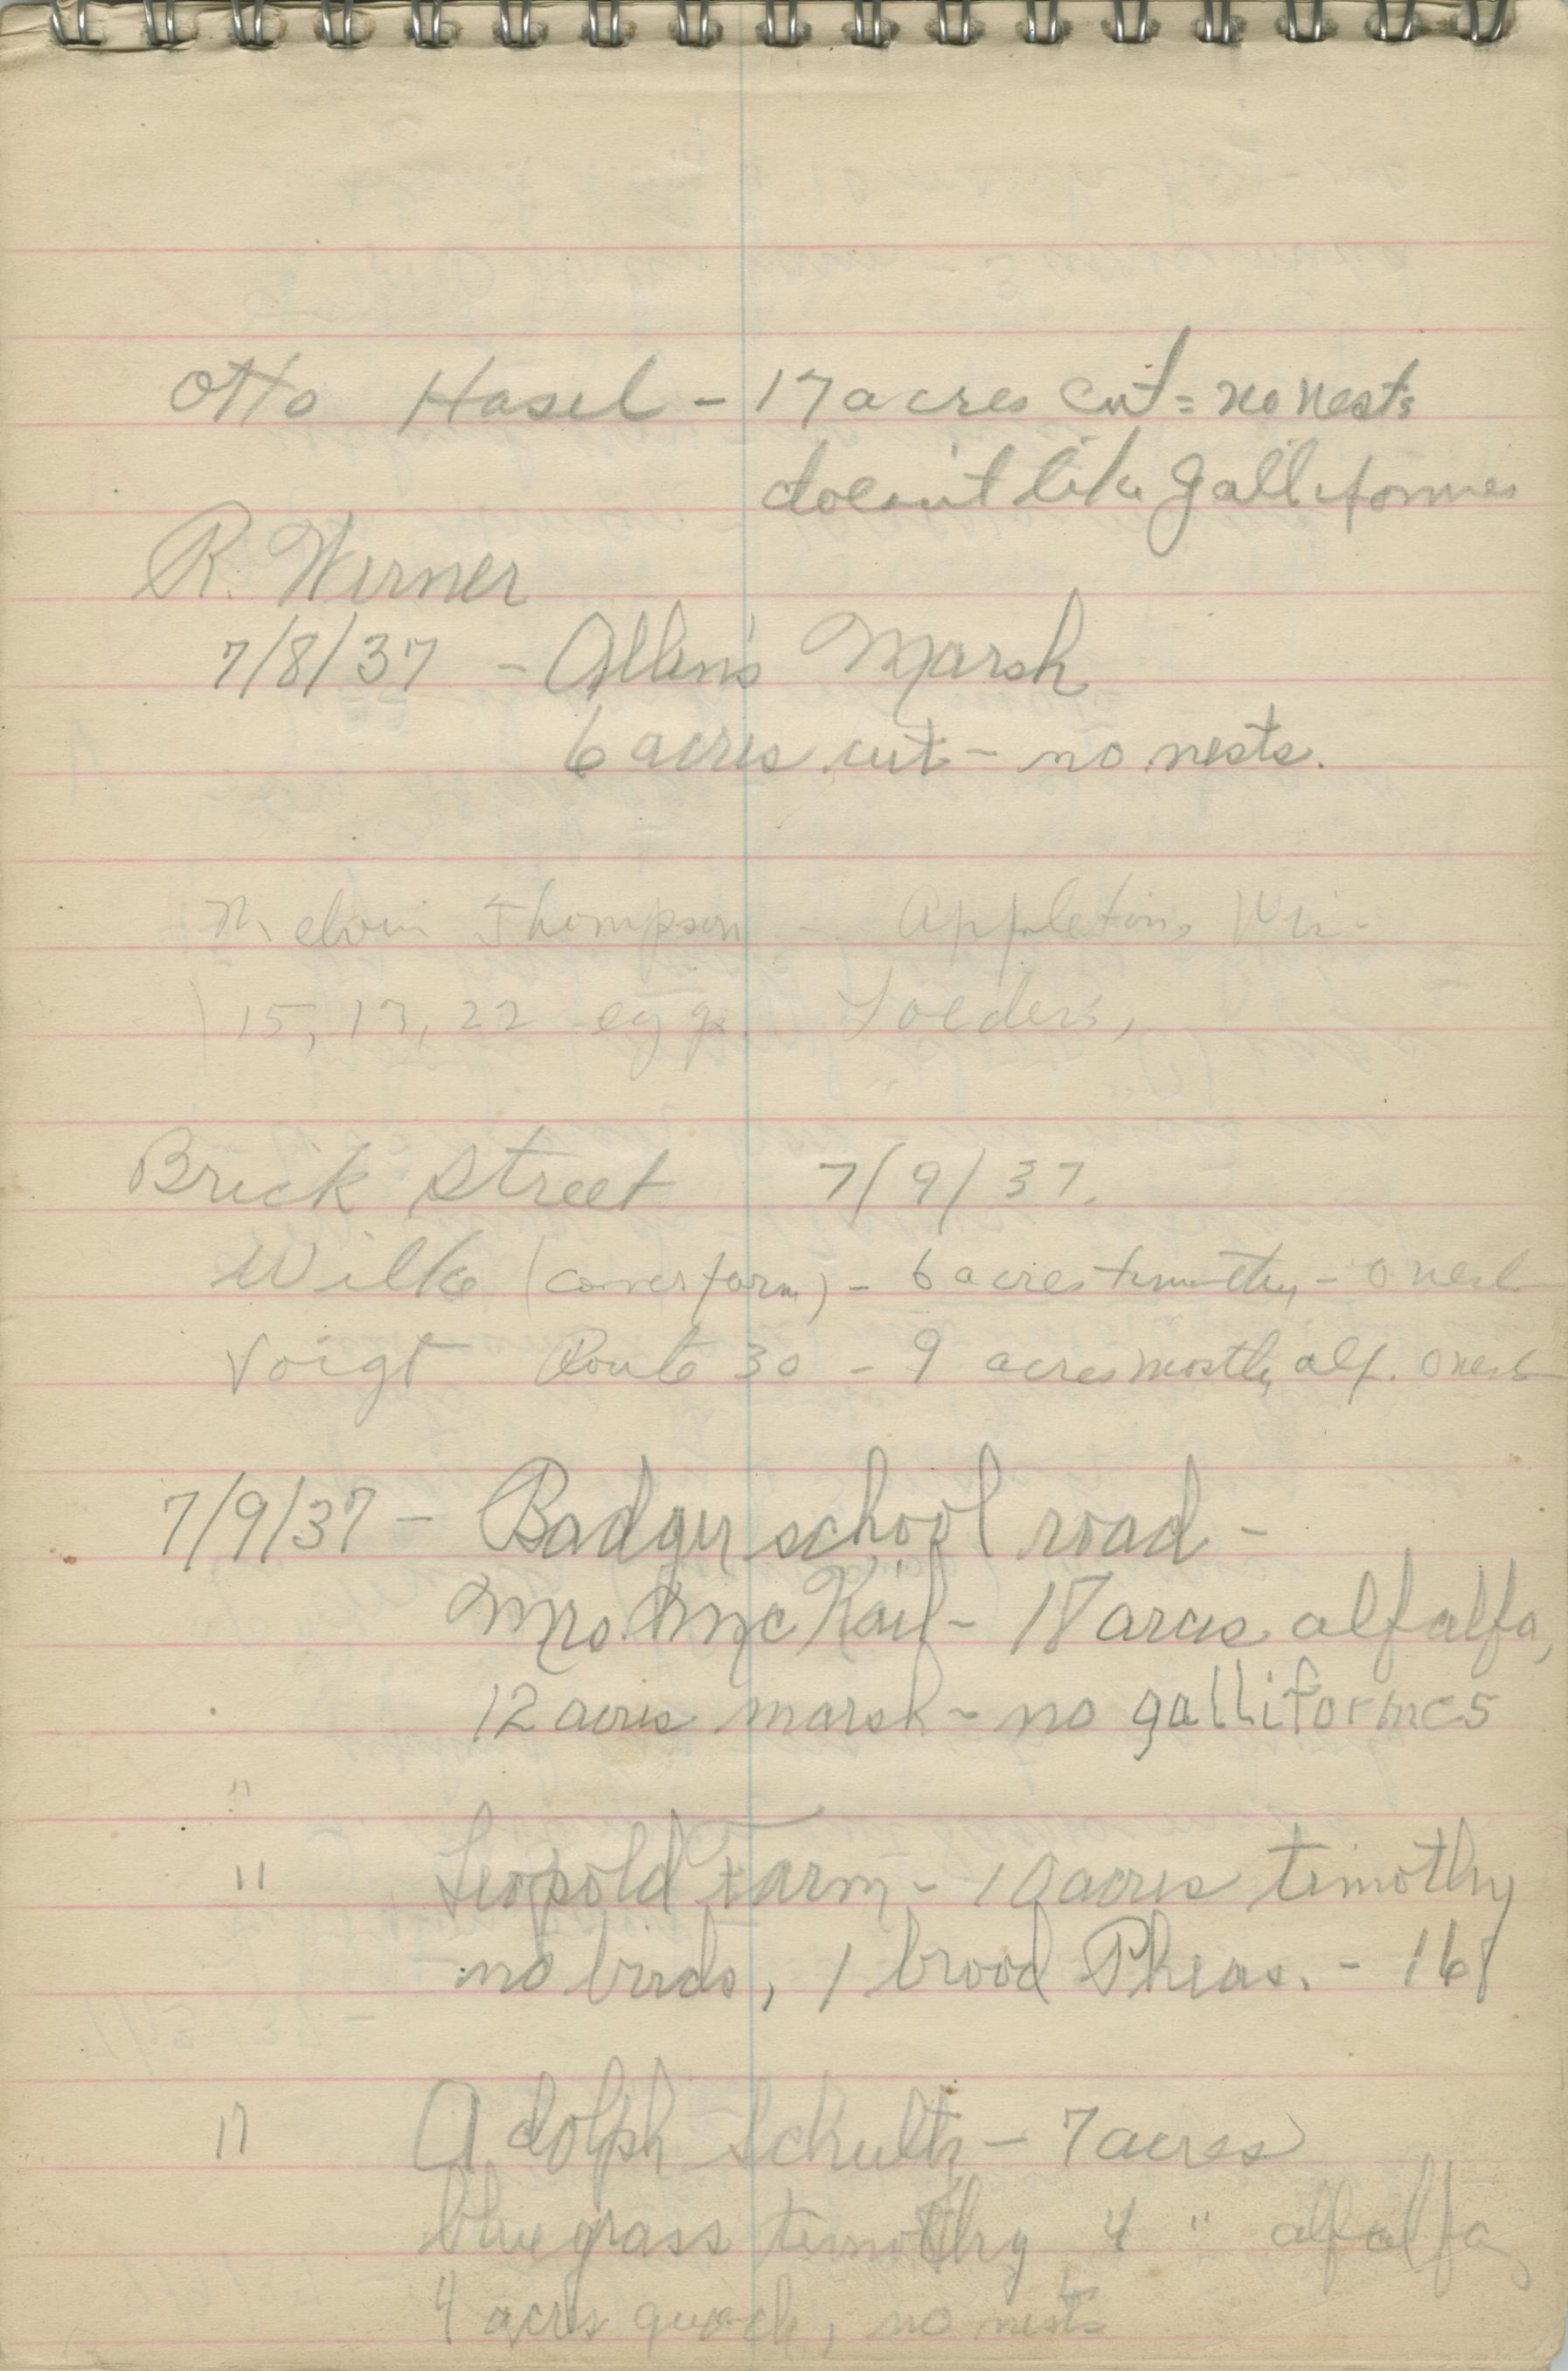 Otto Hasel - 17 acres cut = no nests
doesn't like galliformes
R. Werner
7/8/37 - Allen's Marsh
6 acres cut - no nests.
Melvin Thompson - Appleton, Wis.
15, 17, 22 eggs
Brick Street 7/9/37.
Wilke (corner farm) - 6 acres timothy - 0 nest
Voigt Route 30 - 9 acres mostly alf. 0 nest
7/9/37 - Badger school road -
Mrs. - 18 acres alfalfa,
12 acres marsh - no galliformes
"
" Leopold Farm - 10 acres timothy
no birds, 1 brood Pheas. - 16
" Adolph Schultz - 7 acres
bluegrass timothy 4 " alfalfa,
4 acres quack, no nests